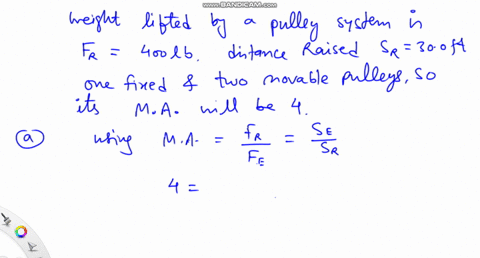 www.BANDICAM.com
weight lifted by a pulley system is
FR = 400 lb, distance Raised SR = 30.0 ft
one fixed & two movable pulleys, so
its M.A. will be 4.
(a) using M.A. = fR/FE = SE/SR
4 =